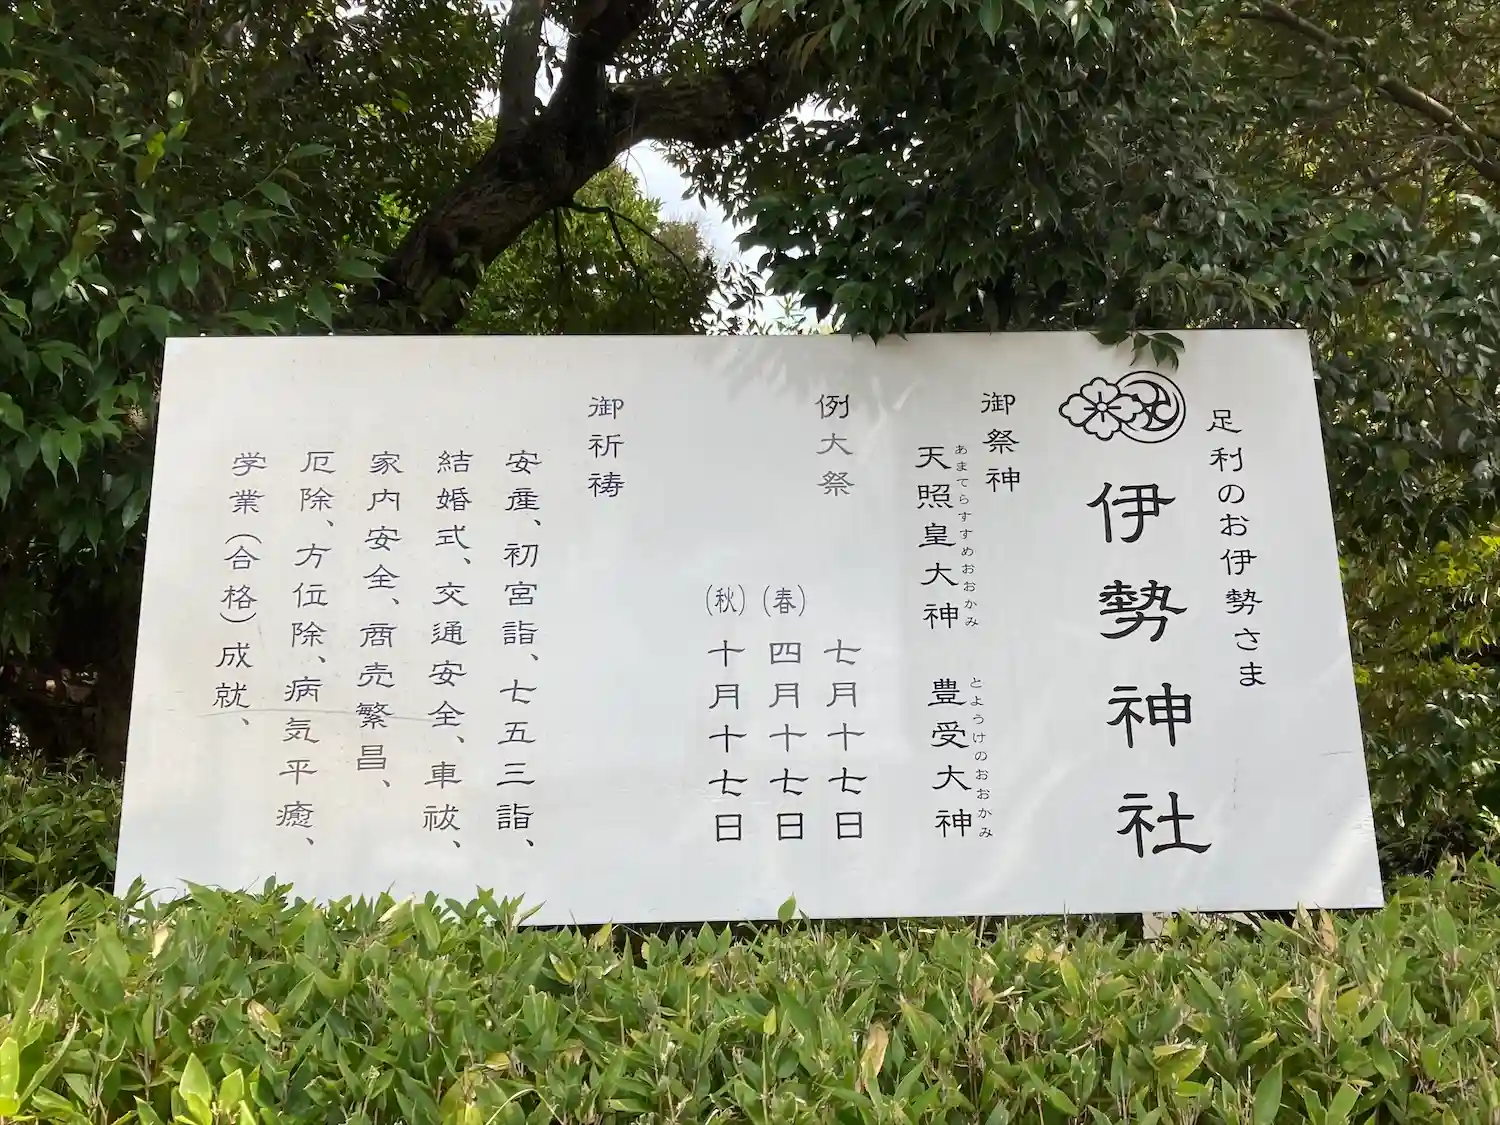 足利のお伊勢さま
伊勢神社
御祭神
あまてらすすめおおかみ とようけのおおかみ
天照皇大神 豊受大神
例大祭
七月十七日
(春)四月十七日
(秋)十月十七日
御祈祷
安産、初宮詣、七五三詣、
結婚式、交通安全、車祓、
家内安全、商売繁昌、
厄除、方位除、病気平癒、
学業(合格)成就、